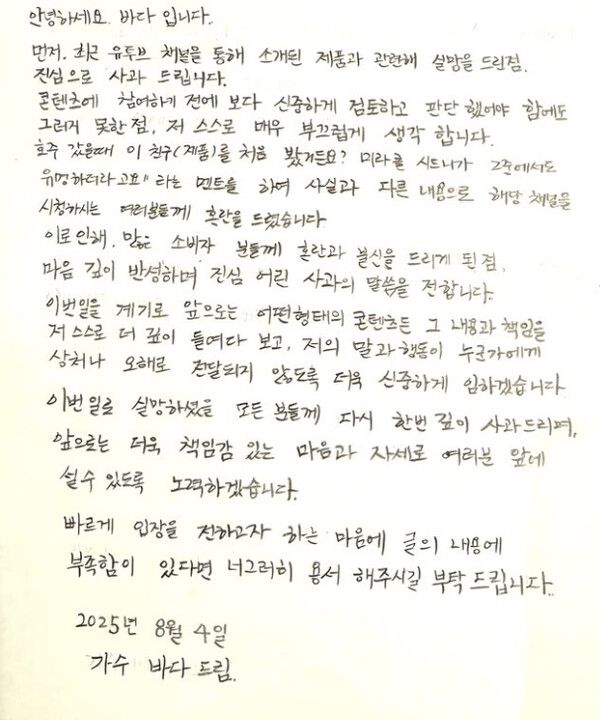 안녕하세요. 바다 입니다.
먼저. 최근 유투브 채널을 통해 소개된 제품과 관련해 실망을 드린점.
진심으로 사과 드립니다.
콘텐츠에 참여하기 전에 보다 신중하게 검토하고 판단 했어야 함에도
그러지 못한 점, 저 스스로 매우 부끄럽게 생각 합니다.
호주 갔을때 이 친구(제품)를 처음 봤거든요? 미라클 시드니가 그중에서도
유명하더라고요" 라는 멘트를 하여 사실과 다른 내용으로 해당 채널을
시청하시는 여러분들께 혼란을 드렸습니다.
이로인해, 많은 소비자 분들께 혼란과 불신을 드리게 된 점,
마음 깊이 반성하며 진심 어린 사과의 말씀을 전합니다.
이번일을 계기로 앞으로는 어떤형태의 콘텐츠든 그 내용과 책임을
저 스스로 더 깊이 들여다 보고, 저의 말과 행동이 누군가에게
상처나 오해로 전달되지 않도록 더욱 신중하게 임하겠습니다
이번일로 실망하셨을 모든 분들께 다시 한번 깊이 사과드리며,
앞으로는 더욱 책임감 있는 마음과 자세로 여러분 앞에
설수 있도록 노력하겠습니다.
빠르게 입장을 전하고자 하는 마음에 글의 내용에
부족함이 있다면 너그러히 용서 해주시길 부탁 드립니다.
2025년 8월 4일
가수 바다 드림.